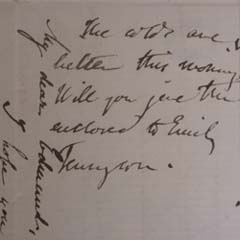 The colds are
better this morning
Will you give the
enclosed to Emily
Tennyson.
My dear Edmund,
I hope you